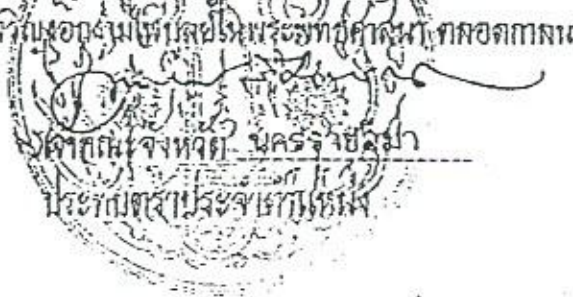 เจริญงอกงามไพบูลย์ในพระพุทธศาสนา ตลอดกาลน
เจ้าคณะจังหวัด นครราชสีมา
ประทับตราประจำตำแหน่ง